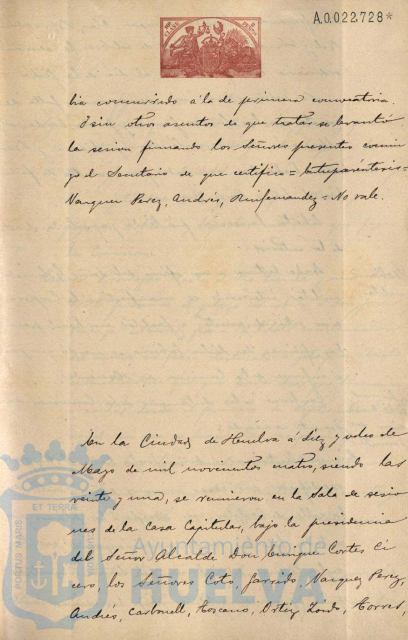 A.0.022,728*
bia concurrido á la de primera convocatoria.
I sin otros asuntos de que tratar se levantó
la sesion firmando los Señores presentes conmi
go el Secretario de que certifico = Entreparéntesis =
Vazquez Perez, Andrés, = No vale.
En la Ciudad de Huelva á diez y ocho de
Mayo de mil novecientos cuatro, siendo las
veinte y una, se reunieron en la Sala de sesio
nes de la Casa Capitular, bajo la presidencia
del Señor Alcalde Don Enrique Cortes Ci
cero, los Señores Coto, Garrido, Vazquez Perez,
Andrés, Carbonell, Toscano, Ortiz, Torres,
PORTUS MARIS
ET TERRA
Ayuntamiento de
HUELVA